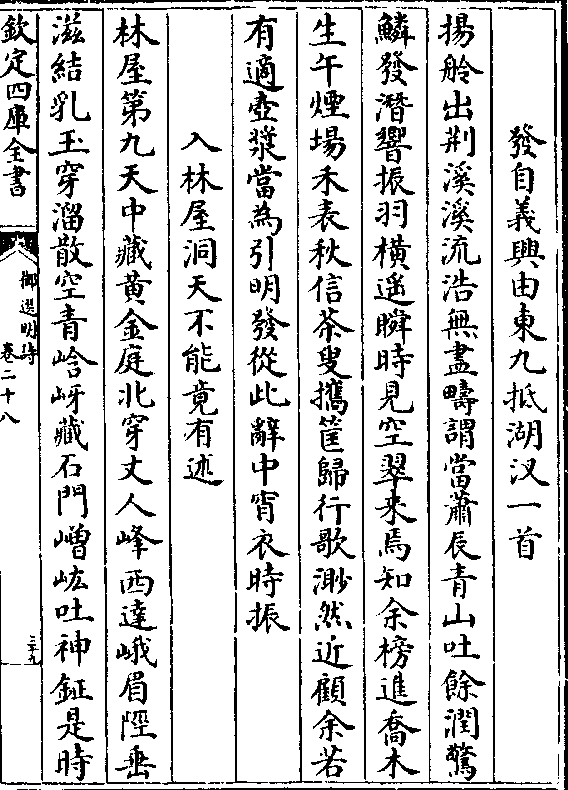 發自義興由東九抵湖汊一首
揚舲出荆溪溪流浩無盡疇謂當蕭辰青山吐餘潤驚
鱗發潛響振羽橫遥瞬時見空翠来焉知余榜進喬木
生午煙場禾表秋信茶叟攜筐歸行歌渺然近顧余若
有適壺漿當為引明發從此辭中宵衣時振
入林屋洞天不能竟有述
林屋第九天中藏黄金庭北穿丈人峰西達峨眉陘垂
滋結乳玉穿溜散空青峆岈藏石門嶒峵吐神鉦是時
欽定四庫全書
御選明詩
卷二十八